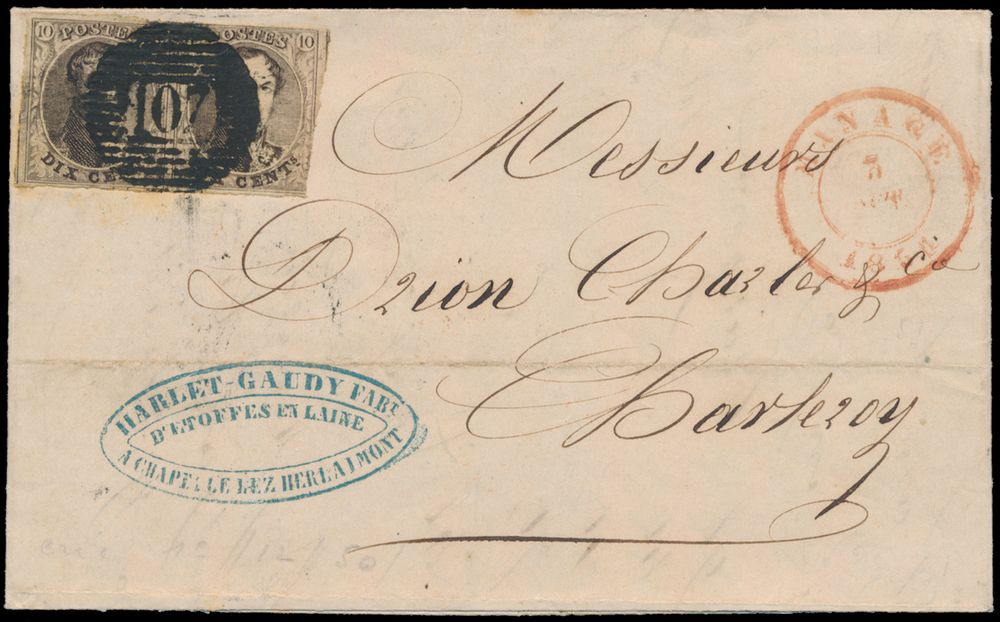 10 POSTES POSTES 10
107
DIX CE CENTS
MANAGE
5
18
Messieurs
Drion Charles & Cie
Charleroy
HARLET-GAUDY FABT
D'ETOFFES EN LAINE
A CHAPELLE LEZ HERLAIMONT
12 50